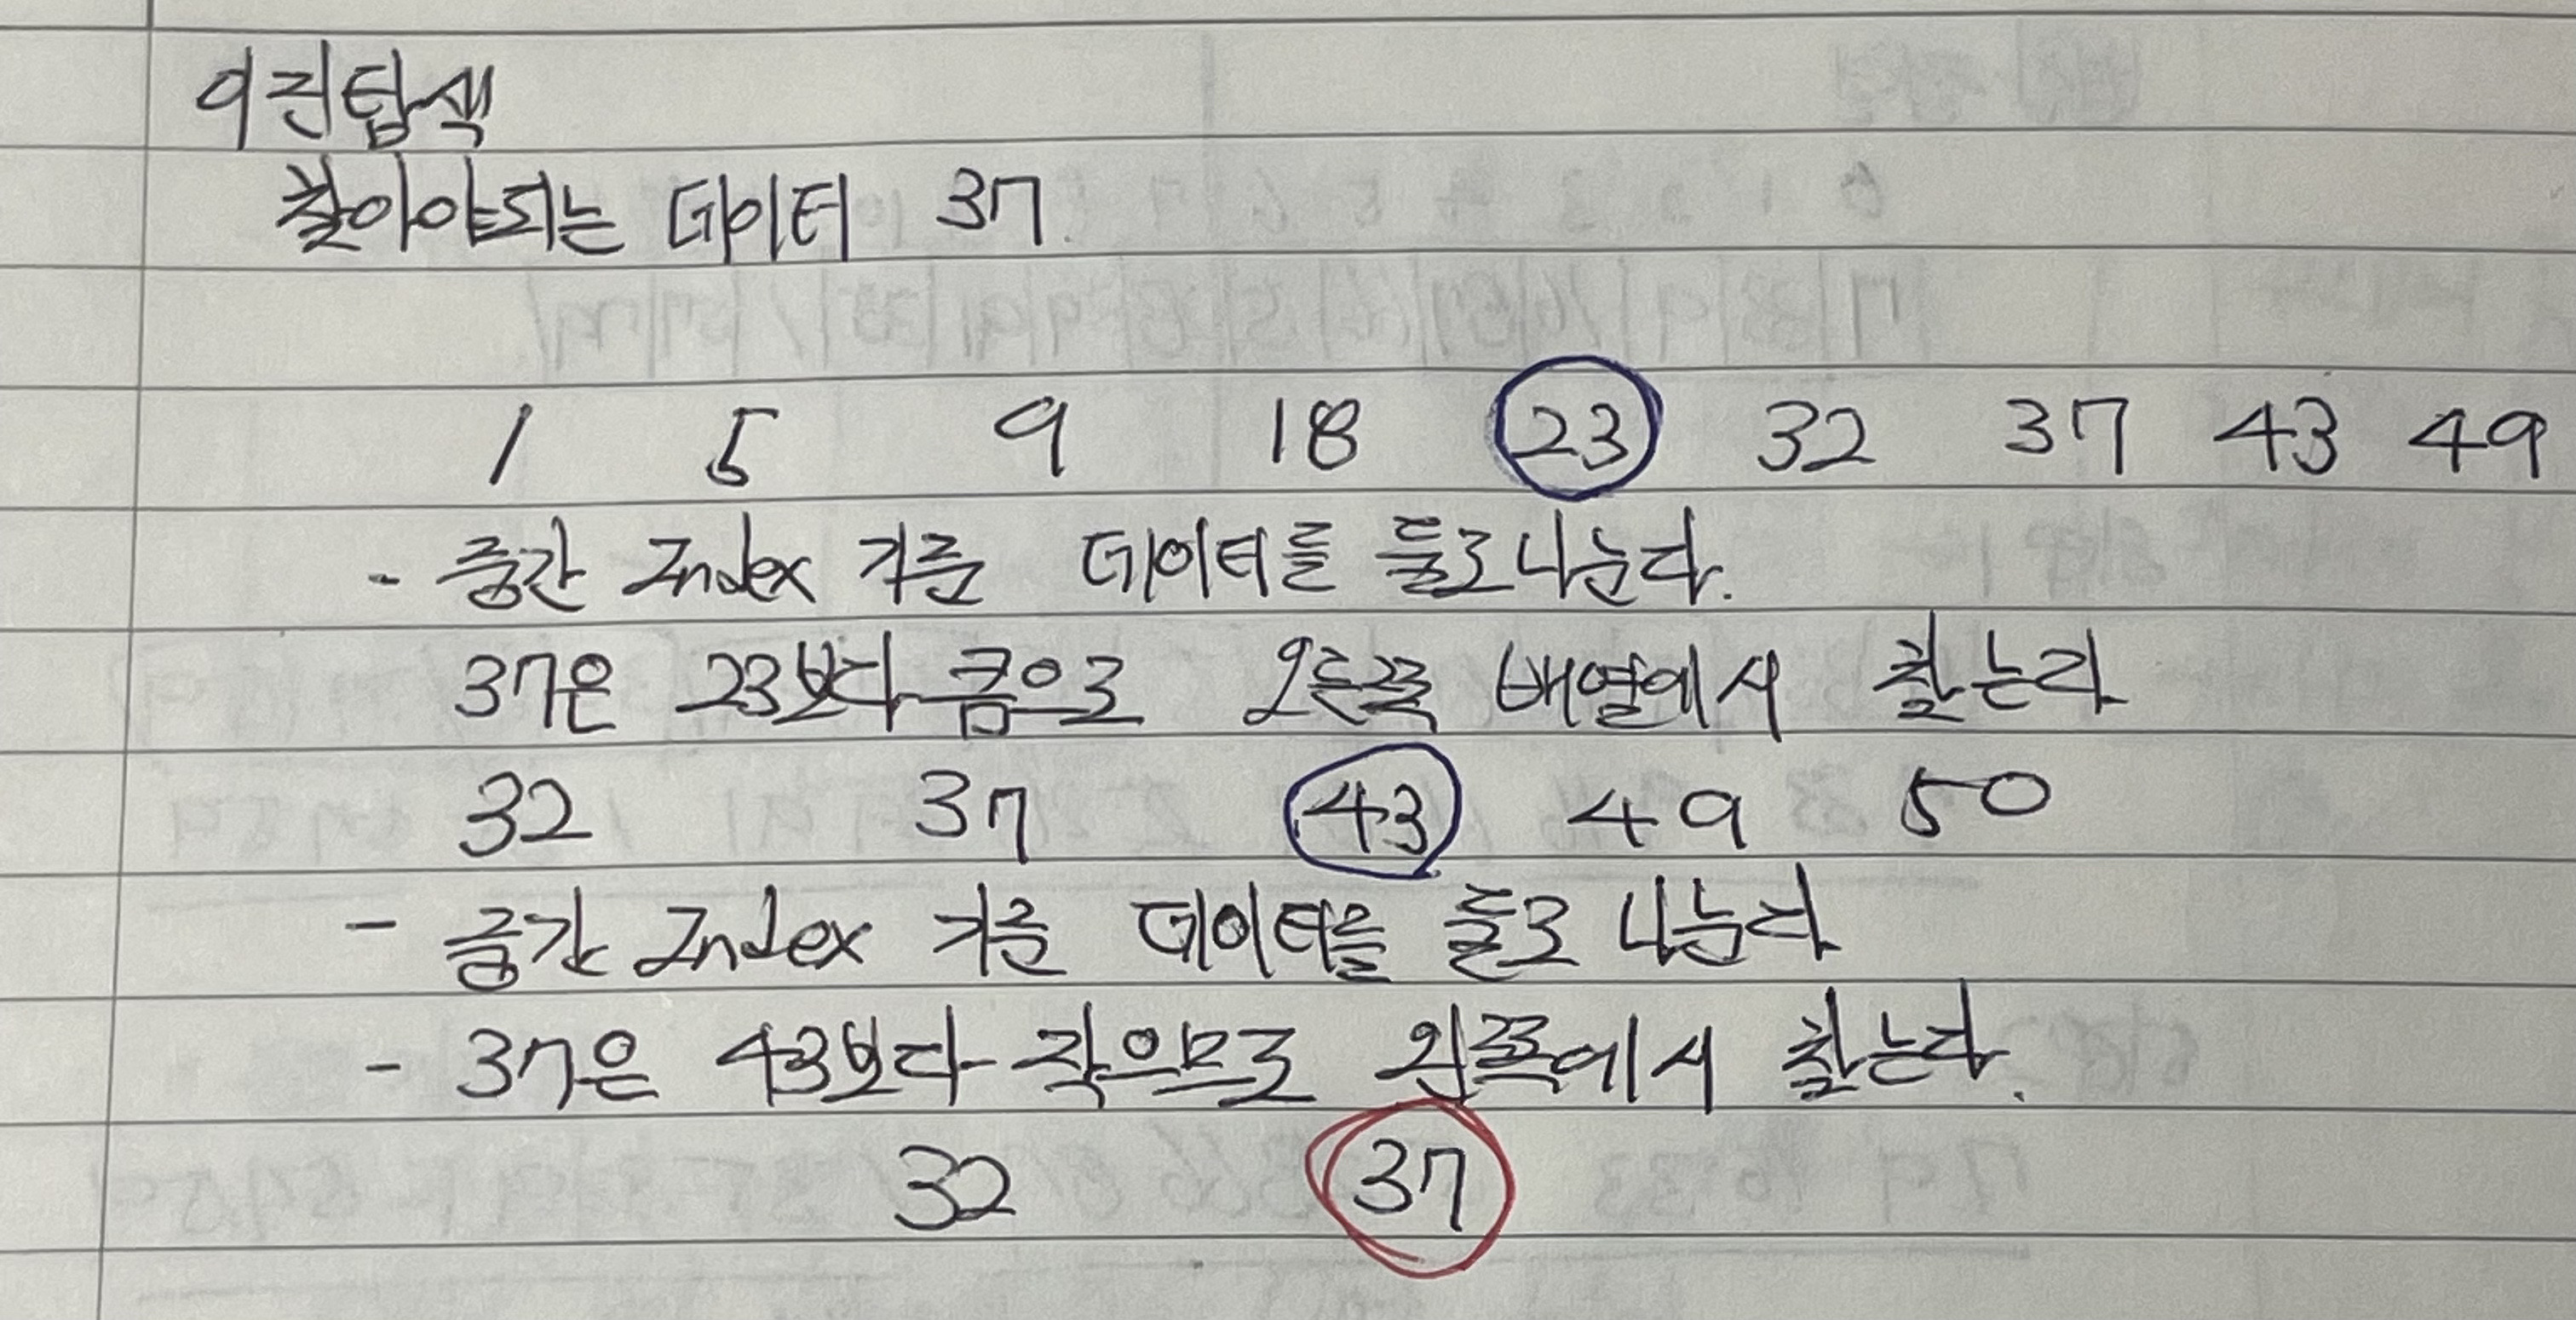 이진탐색
찾아야되는 데이터 37
1 5 9 18 23 32 37 43 49
- 중간 Index 기준 데이터를 둘로나눈다.
37은 23보다 큼으로 오른쪽 배열에서 찾는다
32 37 43 49 50
- 중간 Index 기준 데이터을 둘로 나눈다
- 37은 43보다 작으므로 왼쪽에서 찾는다.
32 37